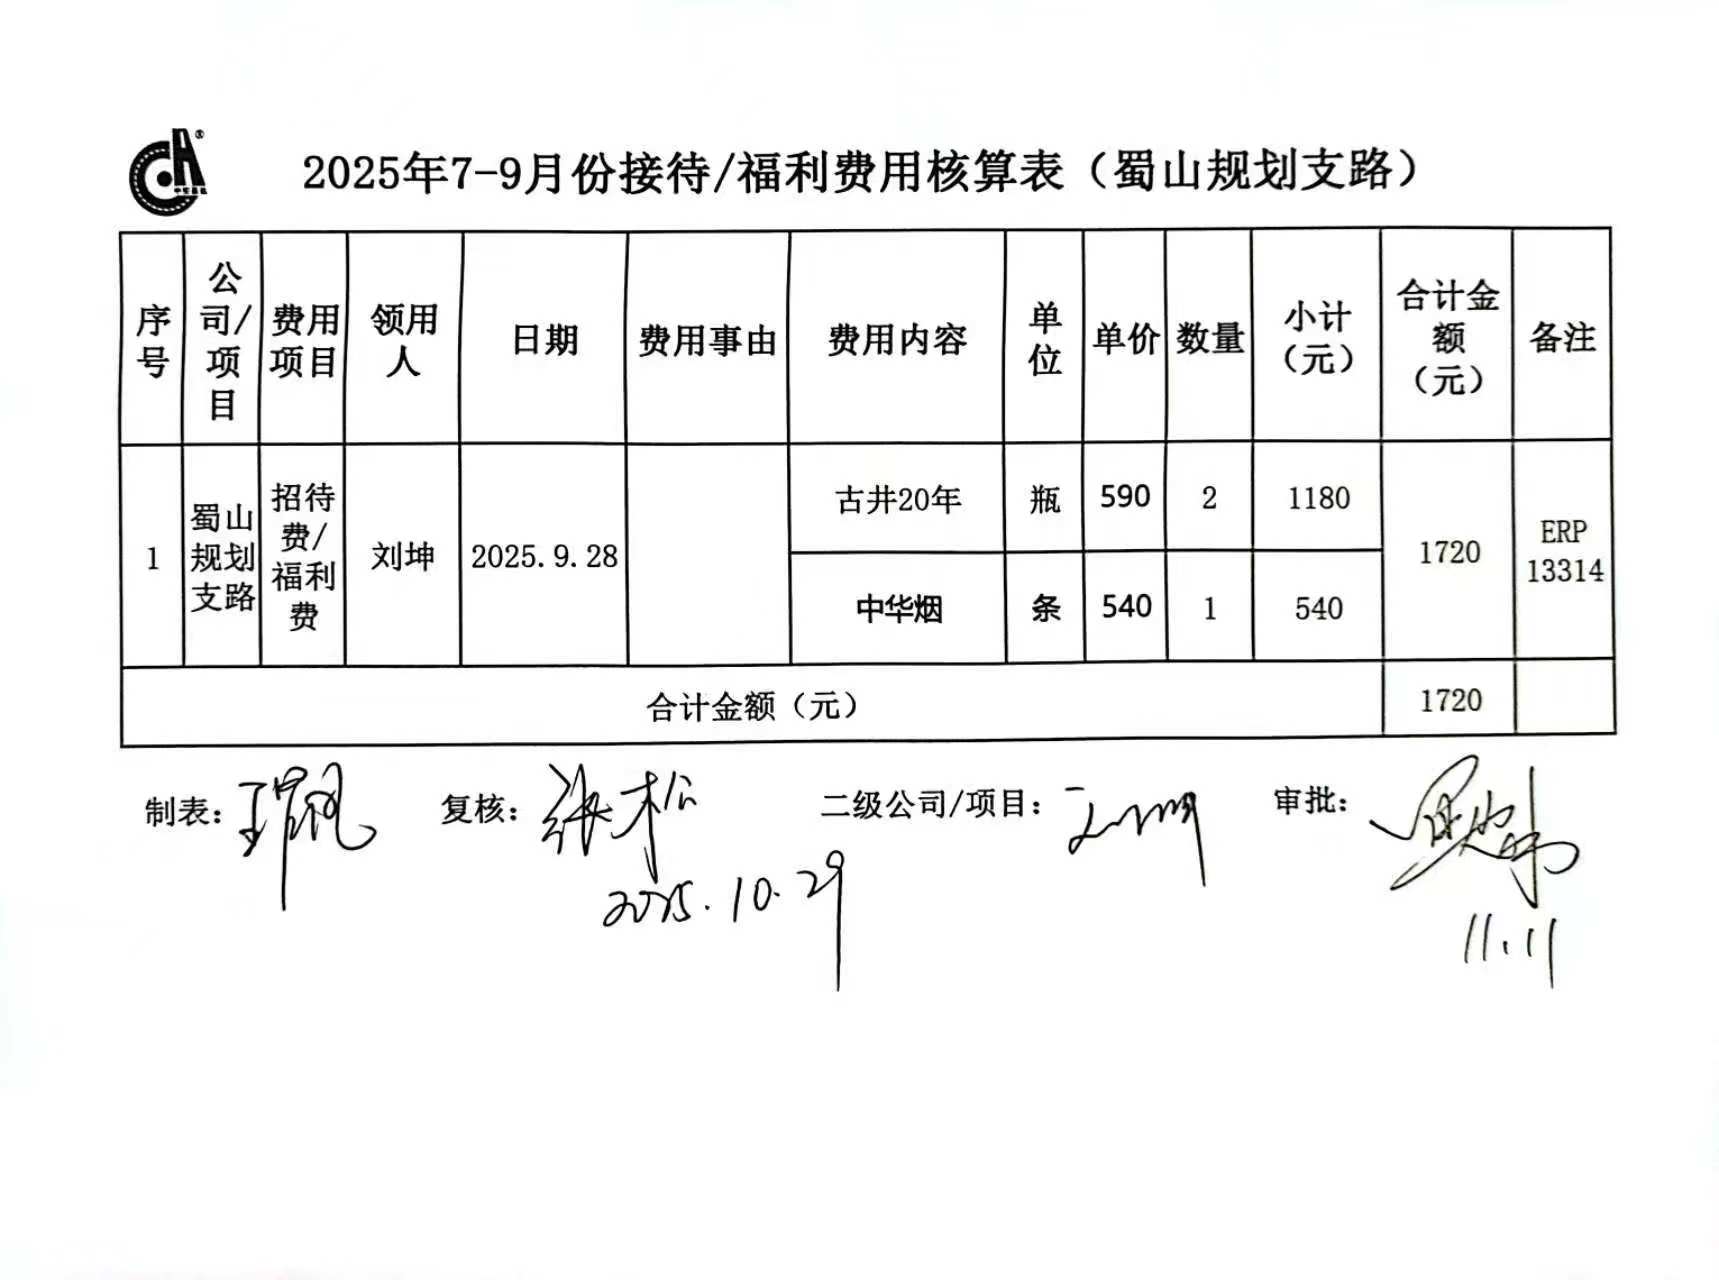 2025年7-9月份接待/福利费用核算表（蜀山规划支路）
序号 公司/项目 费用项目 领用人 日期 费用事由 费用内容 单位 单价 数量 小计（元） 合计金额（元） 备注
1 蜀山规划支路 招待费/福利费 刘坤 2025.9.28 古井20年 瓶 590 2 1180 1720 ERP 13314
中华烟 条 540 1 540
合计金额（元） 1720
制表： 复核：张松 二级公司/项目： 审批：
2025.10.29
11.11